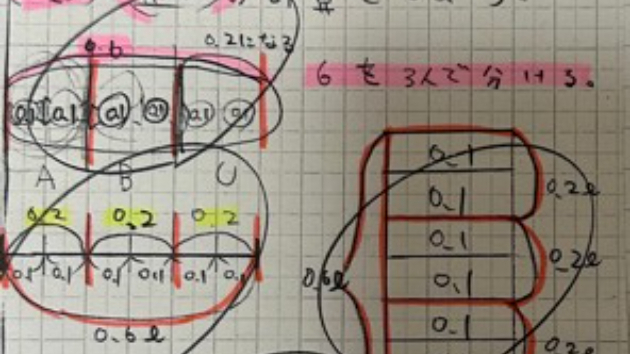 0.6
0.2になる
0.1 0.1 0.1 0.1 0.1 0.1
A B C
0.2 0.2 0.2
0.1 0.1 0.1 0.1 0.1 0.1
0.6ℓ
6を3人で分ける。
0.1
0.1
0.2ℓ
0.1
0.1
0.2ℓ
0.6ℓ
0.1
0.2ℓ